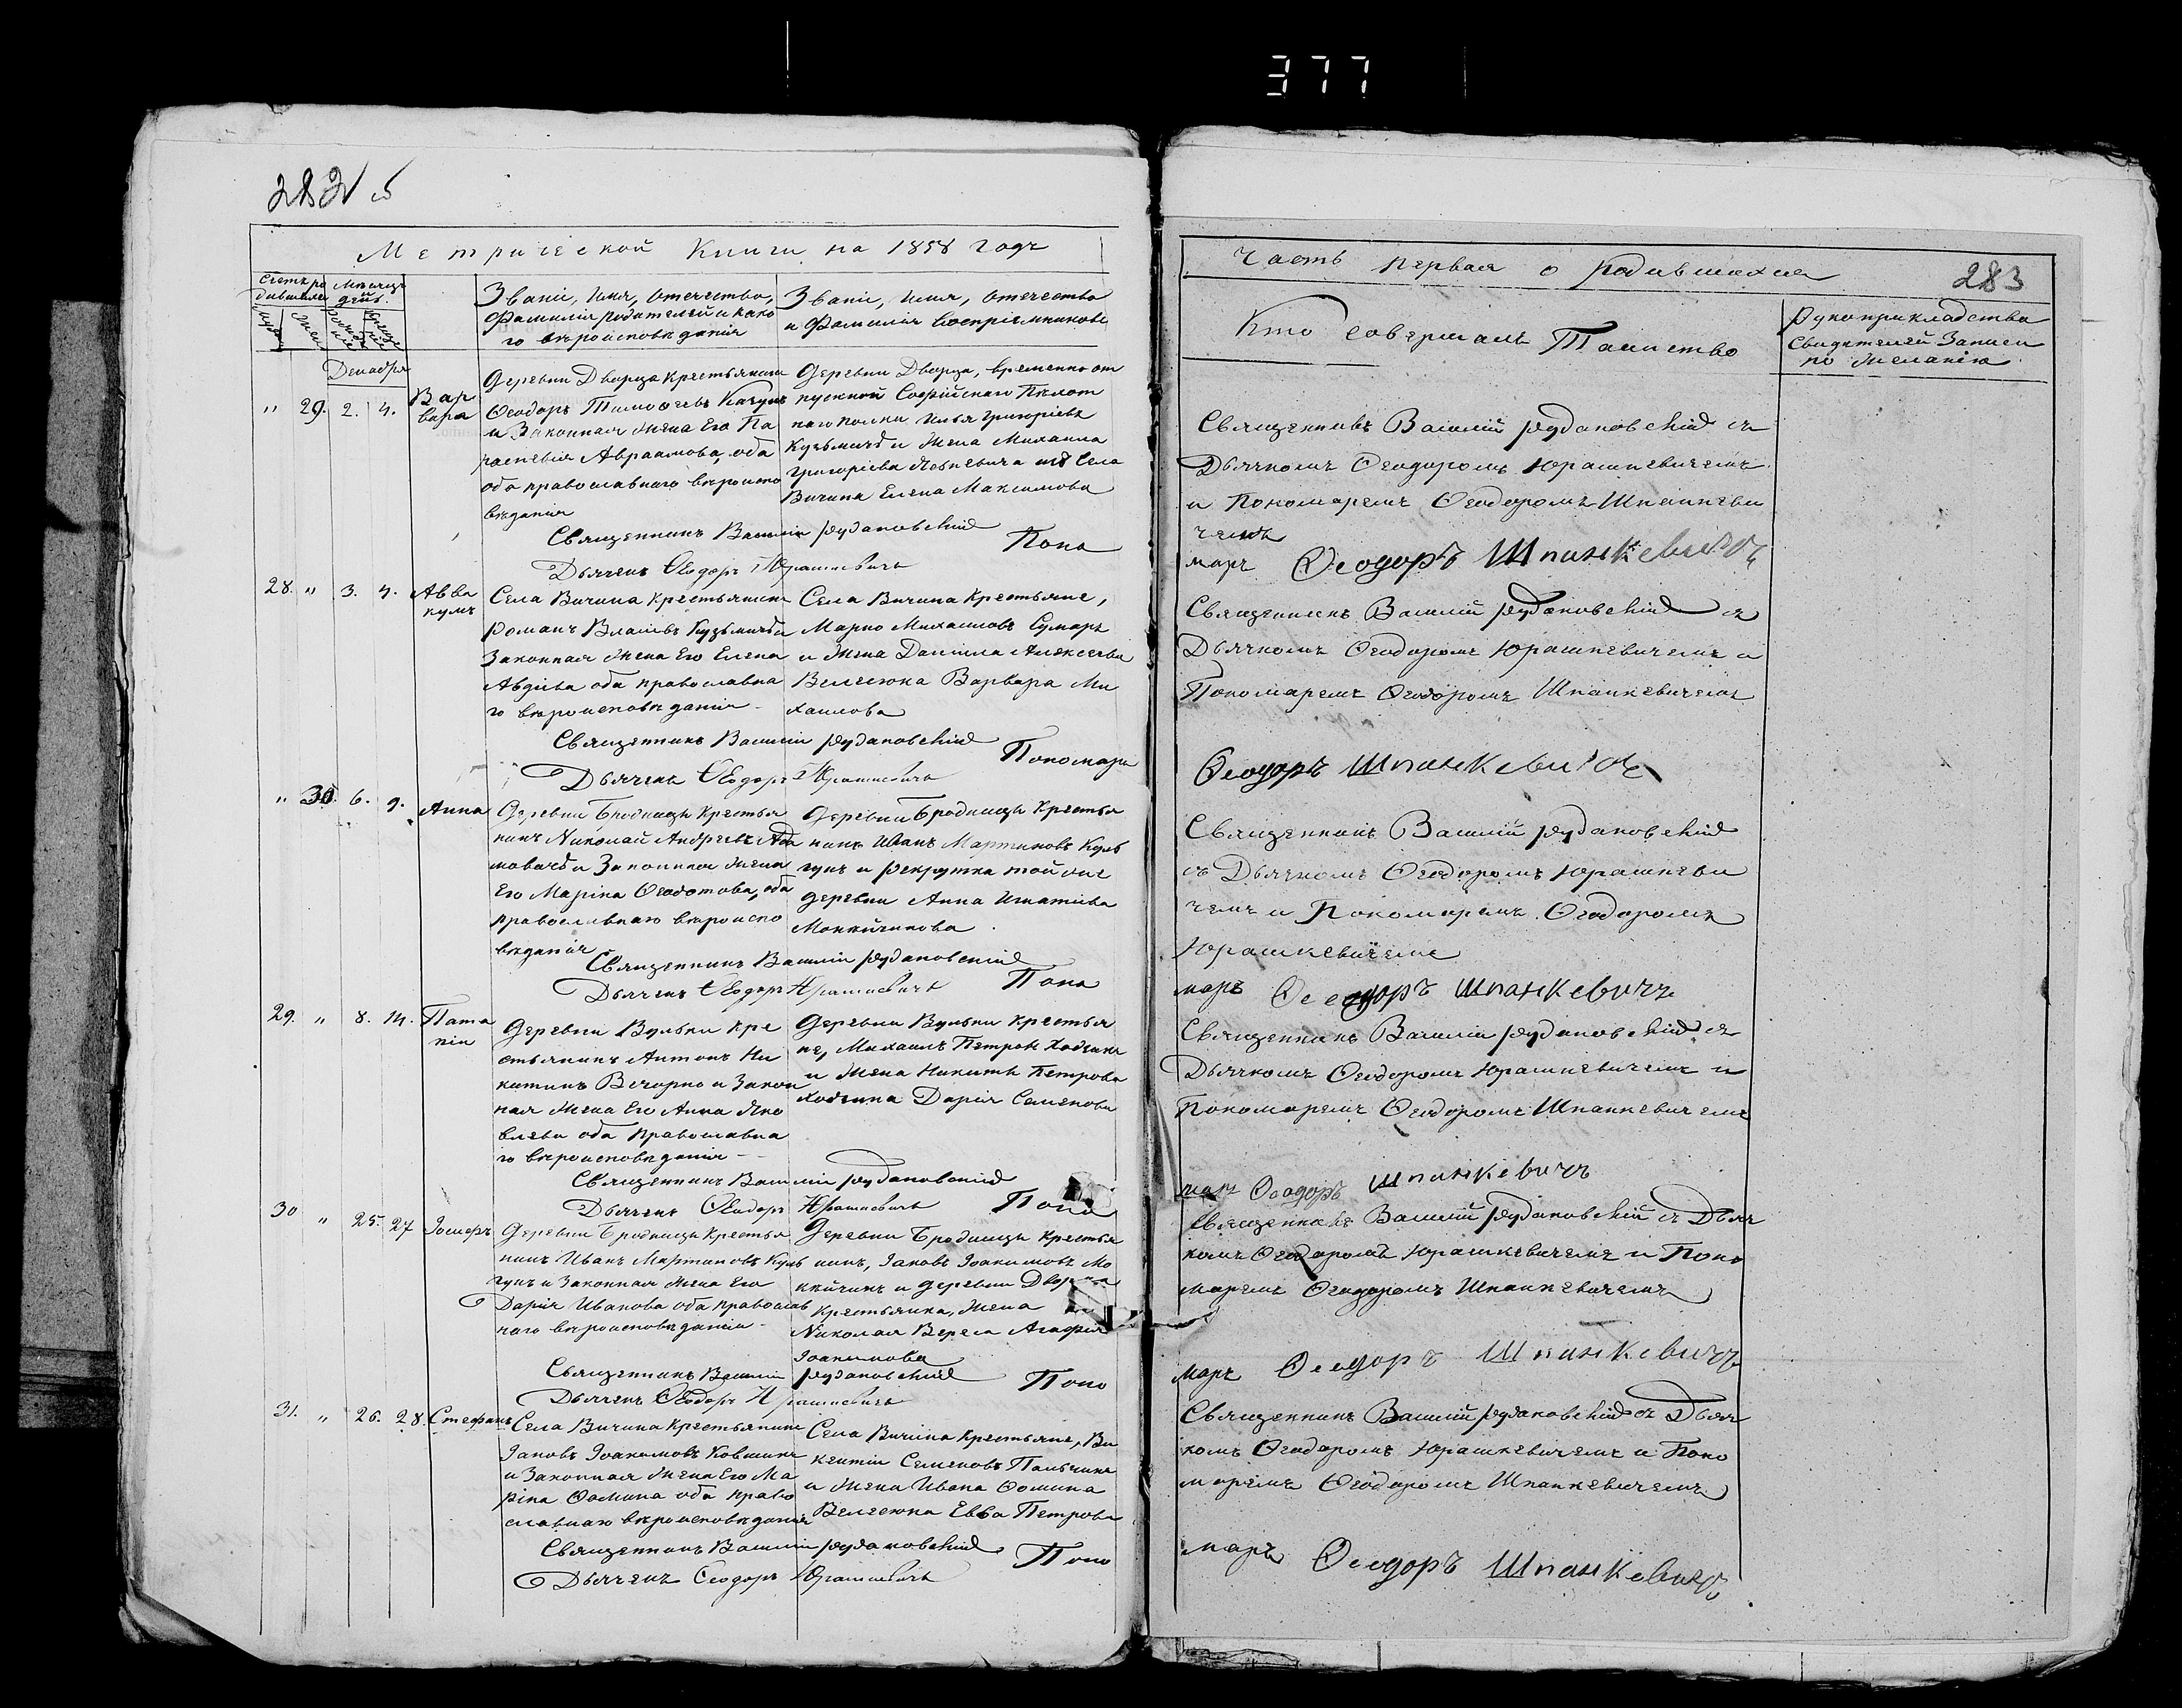 377
282 об
Метрической Книги на 1858 годъ
Счетъ ро
дившихся
Мѣсяцъ
дней
Званіе, Имя, Отечество,
Фамилія родителей и како
го вѣроисповѣданія
Званіе, Имя, Отечество
и Фамилія Воспріемниковъ
Декабря
" 29. 2. 4. Вар
вара
Деревни Дворца крестьянинъ
Ѳеодоръ Тимоѳеевъ
и Законная жена Его Па
раскевія Авраамова, оба
оба православнаго вѣроиспо
вѣданія
Деревни Дворца, временно от
пускной Софійскаго Пѣхот
наго полка Илья Григоріевъ
Кузьмичъ и жена Михаила
Григоріева села
Вичина Елена Максимова
Священникъ Василій Рудановскій
Дьячекъ Ѳеодоръ Юрашкевичъ
Поно
28. " 3. 4. Авва
кумъ
Села Вичина крестьянинъ
Романъ Власіевъ Кузьмичъ и
Законная жена Его Елена
Авдіева оба православна
го вѣроисповѣданія
Села Вичина Крестьяне,
Марко Михаиловъ Сумаръ
и жена Даніила Алексѣева
Велесюка Варвара Ми
хаилова
Священникъ Василій Рудановскій
Дьячекъ Ѳеодоръ Юрашкевичъ
Пономарь
" 30. 6. 9. Анна
Деревни Бродницы Крестья
нинъ Николай Андреевъ Ада
мовичъ и Законная жена
Его Марина Ѳеодотова, оба
православнаго вѣроиспо
вѣданія
Деревни Бродницы Крестья
нинъ Иванъ Мартиновъ Куль
гунъ и рекрутка той же
деревни Анна Игнатіева
Мокийчикова
Священникъ Василій Рудановскій
Дьячекъ Ѳеодоръ Юрашкевичъ
Поно
29. " 8. 14. Пата
пій
Деревни Вульки кре
стьянинъ Антонъ Ни
китинъ Вечорко и Закон
ная жена Его Анна Яко
влева оба православна
го вѣроисповѣданія
Деревни Вульки крестья
не, Михаилъ Петровъ Ходчикъ
и жена Никиты Петрова
Ходчика Дарія Семенова
Священникъ Василій Рудановскій
Дьячекъ Ѳеодоръ Юрашкевичъ
Поно
30 " 25. 27 Іосифъ
Деревни Бродницы Крестья
нинъ Иванъ Мартиновъ Куль
гунъ и Законная жена Его
Дарія Иванова оба православ
наго вѣроисповѣданія
Деревни Бродницы Крестья
нинъ, Іаковъ Іоакимовъ Мо
кійчикъ и деревни Дворца
Крестьянка, жена
Николая Вереса Агафія
Іоакимова
Священникъ Василій Рудановскій
Дьячекъ Ѳеодоръ Юрашкевичъ
Поно
31. " 26. 28. Стефанъ
Села Вичина крестьянинъ
Іаковъ Іоакимовъ Ковшикъ
и Законная жена Его Ма
рина Ѳомина оба право
славнаго вѣроисповѣданія
Села Вичина крестьяне, Ви
кентій Семеновъ Пальчикъ
и жена Ивана Ѳомина
Велесюка Евва Петрова
Священникъ Василій Рудановскій
Дьячекъ Ѳеодоръ Юрашкевичъ
Поно
Часть первая о родившихся
283
Кто совершалъ Таинство
Рукоприкладство
Свидѣтелей Записи
по желанію
Священникъ Василій Рудановскій съ
Дьячкомъ Ѳеодоромъ Юрашкевичемъ
и Пономаремъ Ѳеодоромъ Шпанкеви
чемъ
марь Ѳеодоръ Шпанкевичъ
Священникъ Василій Рудановскій съ
Дьячкомъ Ѳеодоромъ Юрашкевичемъ и
Пономаремъ Ѳеодоромъ Шпанкевичемъ
Ѳеодоръ Шпанкевичъ
Священникъ Василій Рудановскій
съ Дьячкомъ Ѳеодоромъ Юрашкеви
чемъ и Пономаремъ Ѳеодоромъ
Юрашкевичемъ
марь Ѳеодоръ Шпанкевичъ
Священникъ Василій Рудановскій съ
Дьячкомъ Ѳеодоромъ Юрашкевичемъ и
Пономаремъ Ѳеодоромъ Шпанкевичемъ
марь Ѳеодоръ Шпанкевичъ
Священникъ Василій Рудановскій съ Дьяч
комъ Ѳеодоромъ Юрашкевичемъ и Поно
маремъ Ѳеодоромъ Шпанкевичемъ
марь Ѳеодоръ Шпанкевичъ
Священникъ Василій Рудановскій съ Дьяч
комъ Ѳеодоромъ Юрашкевичемъ и Поно
маремъ Ѳеодоромъ Шпанкевичемъ
марь Ѳеодоръ Шпанкевичъ